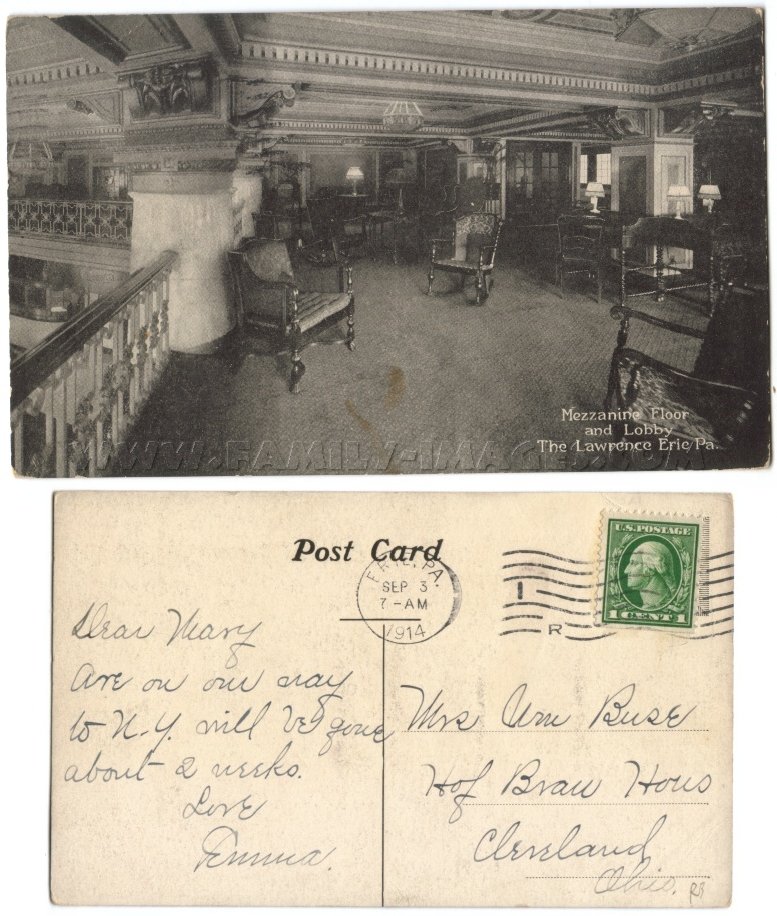 Mezzanine Floor
and Lobby
The Lawrence Erie, Pa.
WWW.FAMILY-IMAGES.COM
Post Card
ERIE, PA.
SEP 3
7-AM
1914
1
R
U.S. POSTAGE
1 CENT 1
Dear Mary
Are on our way
to N.Y. will be gone
about 2 weeks.
Love
Emma.
Mrs Wm Buse
Hof Brau Hous
Cleveland
Ohio.